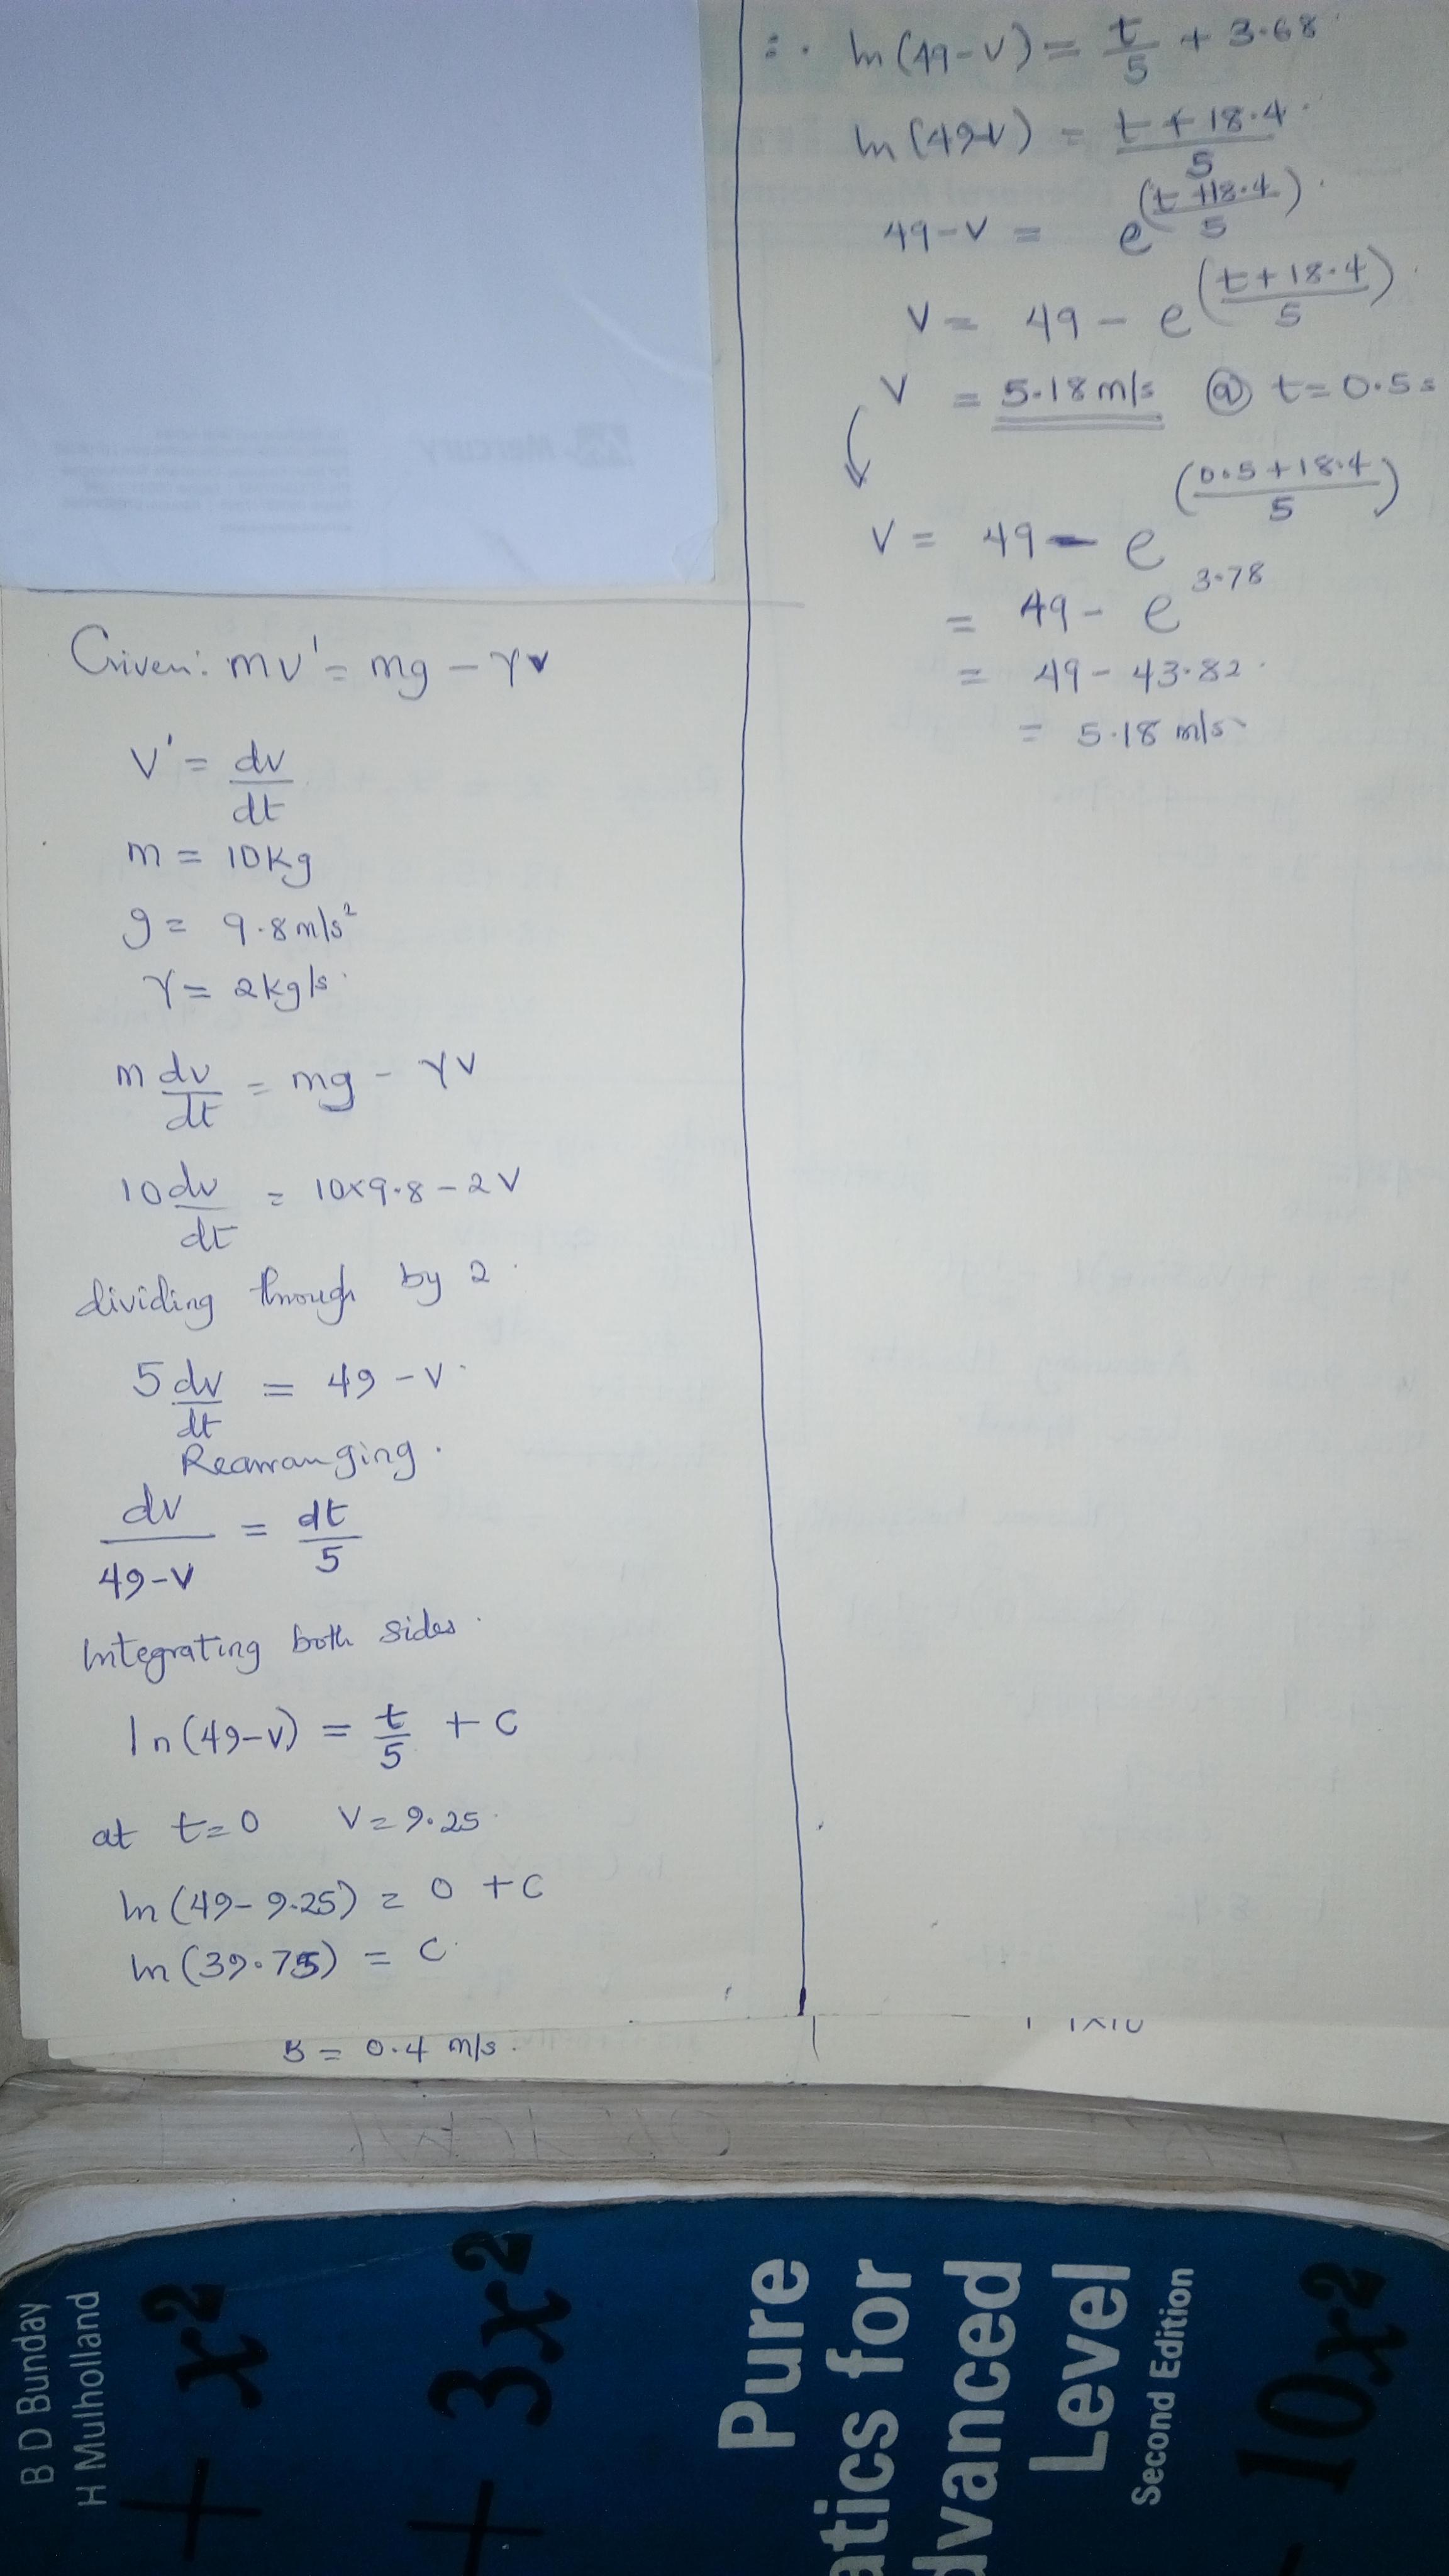 Given: mv' = mg - γv
v' = dv/dt
m = 10kg
g = 9.8 m/s²
γ = 2kg/s.
m dv/dt = mg - γv
10 dv/dt = 10×9.8 - 2v
dividing through by 2.
5 dv/dt = 49 - v.
Rearranging.
dv/(49-v) = dt/5
Integrating both sides.
ln(49-v) = t/5 + c
at t=0 v=9.25.
ln(49-9.25) = 0 + c
ln(39.75) = c.
∴ ln(49-v) = t/5 + 3.68
ln(49-v) = (t+18.4)/5
49-v = e^((t+18.4)/5).
v = 49 - e^((t+18.4)/5).
v = 5.18 m/s @ t=0.5s
v = 49 - e^((0.5+18.4)/5)
= 49 - e^3.78
= 49 - 43.82.
= 5.18 m/s
B = 0.4 m/s.
B D Bunday
H Mulholland
+ x²
+ 3x²
Pure
atics for
dvanced
Level
Second Edition
10x²